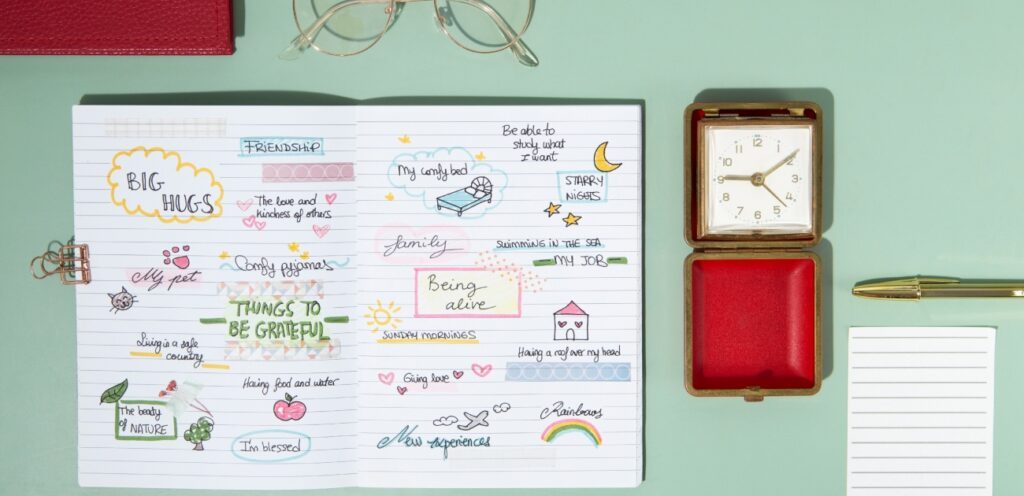 BIG
HUGS
FRIENDSHIP
The love and
kindness of others
My pet
Comfy pyjamas
THINGS TO
BE GRATEFUL
Living in a safe
country
Having food and water
The beauty
of NATURE
I'm blessed
Be able to
study what
I want
My comfy bed
STARRY
NIGHTS
family
SWIMMING IN THE SEA
MY JOB
Being
alive
SUNDAY MORNINGS
Having a roof over my head
Giving love
Rainbows
New experiences
12
11
1
10
2
9
3
8
4
7
5
6